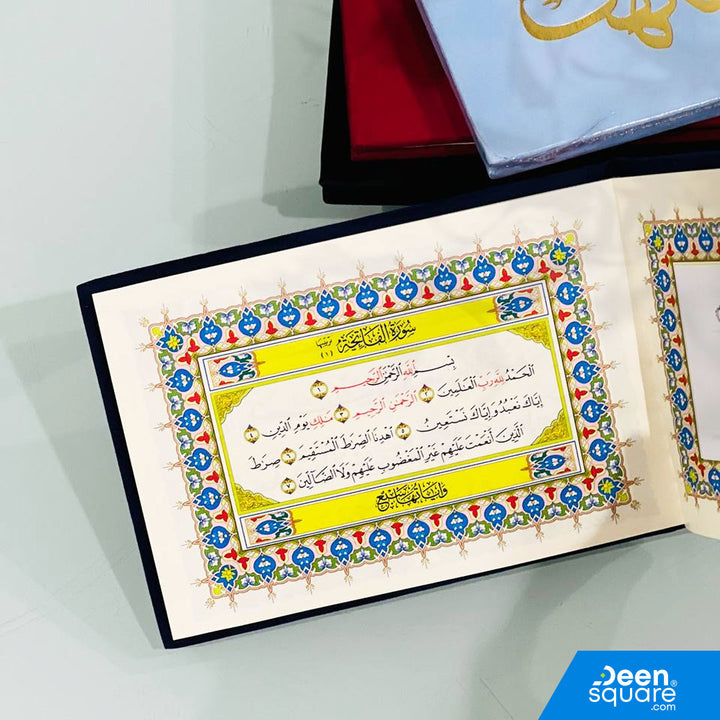 سُورَةُ الفَاتِحَةِ
(١)
بِسْمِ ٱللَّهِ ٱلرَّحْمَٰنِ ٱلرَّحِيمِ ١
ٱلْحَمْدُ لِلَّهِ رَبِّ ٱلْعَٰلَمِينَ ٢ ٱلرَّحْمَٰنِ ٱلرَّحِيمِ ٣ مَٰلِكِ يَوْمِ ٱلدِّينِ ٤
إِيَّاكَ نَعْبُدُ وَإِيَّاكَ نَسْتَعِينُ ٥ ٱهْدِنَا ٱلصِّرَٰطَ ٱلْمُسْتَقِيمَ ٦ صِرَٰطَ
ٱلَّذِينَ أَنْعَمْتَ عَلَيْهِمْ غَيْرِ ٱلْمَغْضُوبِ عَلَيْهِمْ وَلَا ٱلضَّآلِّينَ ٧
وَآيَاتُهَا سَبْعٌ
Deen
square®
.com